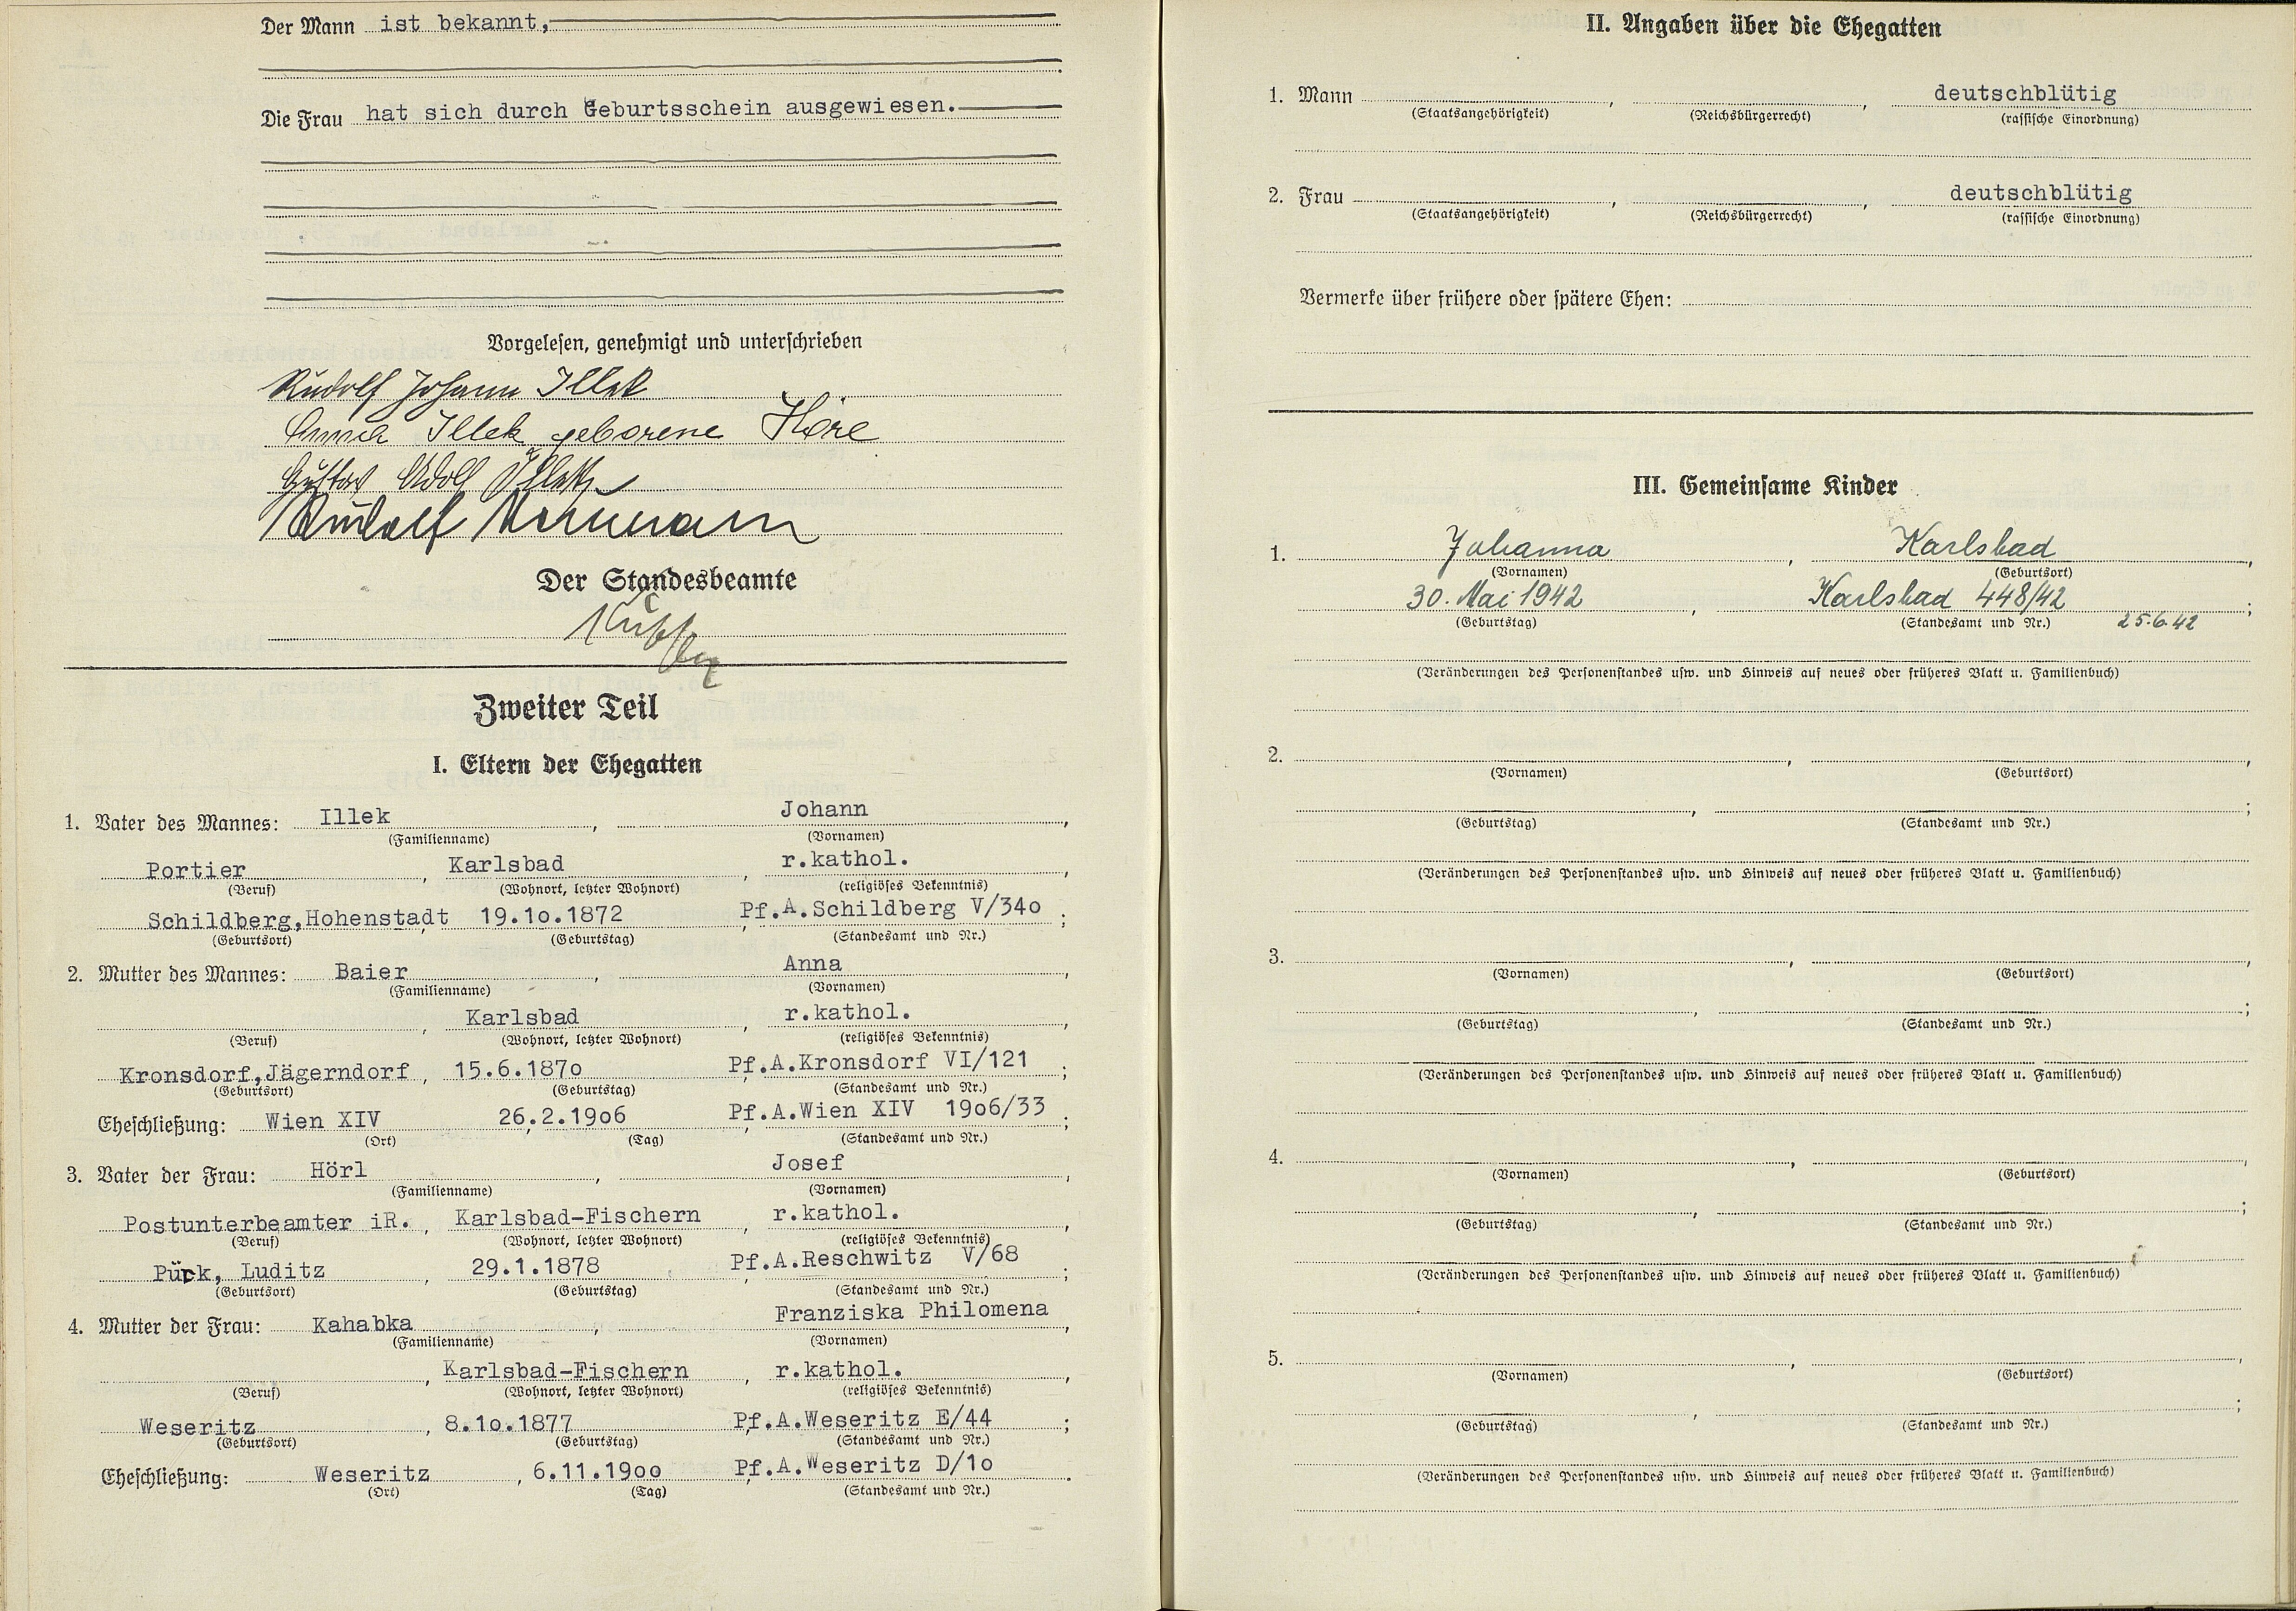 Der Mann ist bekannt,
Die Frau hat sich durch Geburtsschein ausgewiesen.
Vorgelesen, genehmigt und unterschrieben
Rudolf Johann Illek
Anna Illek geborene
Gustav Adolf Illek
Rudolf
Der Standesbeamte
Zweiter Teil
I. Eltern der Ehegatten
1. Vater des Mannes: Illek, Johann,
(Familienname) (Vornamen)
Portier, Karlsbad, r.kathol.,
(Beruf) (Wohnort, letzter Wohnort) (religiöses Bekenntnis)
Schildberg,Hohenstadt, 19.1o.1872, Pf.A.Schildberg V/34o;
(Geburtsort) (Geburtstag) (Standesamt und Nr.)
2. Mutter des Mannes: Baier, Anna,
(Familienname) (Vornamen)
, Karlsbad, r.kathol.,
(Beruf) (Wohnort, letzter Wohnort) (religiöses Bekenntnis)
Kronsdorf,Jägerndorf, 15.6.187o, Pf.A.Kronsdorf VI/121;
(Geburtsort) (Geburtstag) (Standesamt und Nr.)
Eheschließung: Wien XIV, 26.2.19o6, Pf.A.Wien XIV 19o6/33;
(Ort) (Tag) (Standesamt und Nr.)
3. Vater der Frau: Hörl, Josef,
(Familienname) (Vornamen)
Postunterbeamter iR., Karlsbad-Fischern, r.kathol.,
(Beruf) (Wohnort, letzter Wohnort) (religiöses Bekenntnis)
Pürk, Luditz, 29.1.1878, Pf.A.Reschwitz V/68;
(Geburtsort) (Geburtstag) (Standesamt und Nr.)
4. Mutter der Frau: Kahabka, Franziska Philomena,
(Familienname) (Vornamen)
, Karlsbad-Fischern, r.kathol.,
(Beruf) (Wohnort, letzter Wohnort) (religiöses Bekenntnis)
Weseritz, 8.1o.1877, Pf.A.Weseritz E/44;
(Geburtsort) (Geburtstag) (Standesamt und Nr.)
Eheschließung: Weseritz, 6.11.19oo, Pf.A.Weseritz D/1o.
(Ort) (Tag) (Standesamt und Nr.)
II. Angaben über die Ehegatten
1. Mann , , deutschblütig
(Staatsangehörigkeit) (Reichsbürgerrecht) (rassische Einordnung)
2. Frau , , deutschblütig
(Staatsangehörigkeit) (Reichsbürgerrecht) (rassische Einordnung)
Vermerke über frühere oder spätere Ehen:
III. Gemeinsame Kinder
1. Johanna, Karlsbad,
(Vornamen) (Geburtsort)
30. Mai 1942, Karlsbad 448/42;
(Geburtstag) (Standesamt und Nr.) 25.6.42
(Veränderungen des Personenstandes usw. und Hinweis auf neues oder früheres Blatt u. Familienbuch)
2. , ,
(Vornamen) (Geburtsort)
, ;
(Geburtstag) (Standesamt und Nr.)
(Veränderungen des Personenstandes usw. und Hinweis auf neues oder früheres Blatt u. Familienbuch)
3. , ,
(Vornamen) (Geburtsort)
, ;
(Geburtstag) (Standesamt und Nr.)
(Veränderungen des Personenstandes usw. und Hinweis auf neues oder früheres Blatt u. Familienbuch)
4. , ,
(Vornamen) (Geburtsort)
, ;
(Geburtstag) (Standesamt und Nr.)
(Veränderungen des Personenstandes usw. und Hinweis auf neues oder früheres Blatt u. Familienbuch)
5. , ,
(Vornamen) (Geburtsort)
, ;
(Geburtstag) (Standesamt und Nr.)
(Veränderungen des Personenstandes usw. und Hinweis auf neues oder früheres Blatt u. Familienbuch)